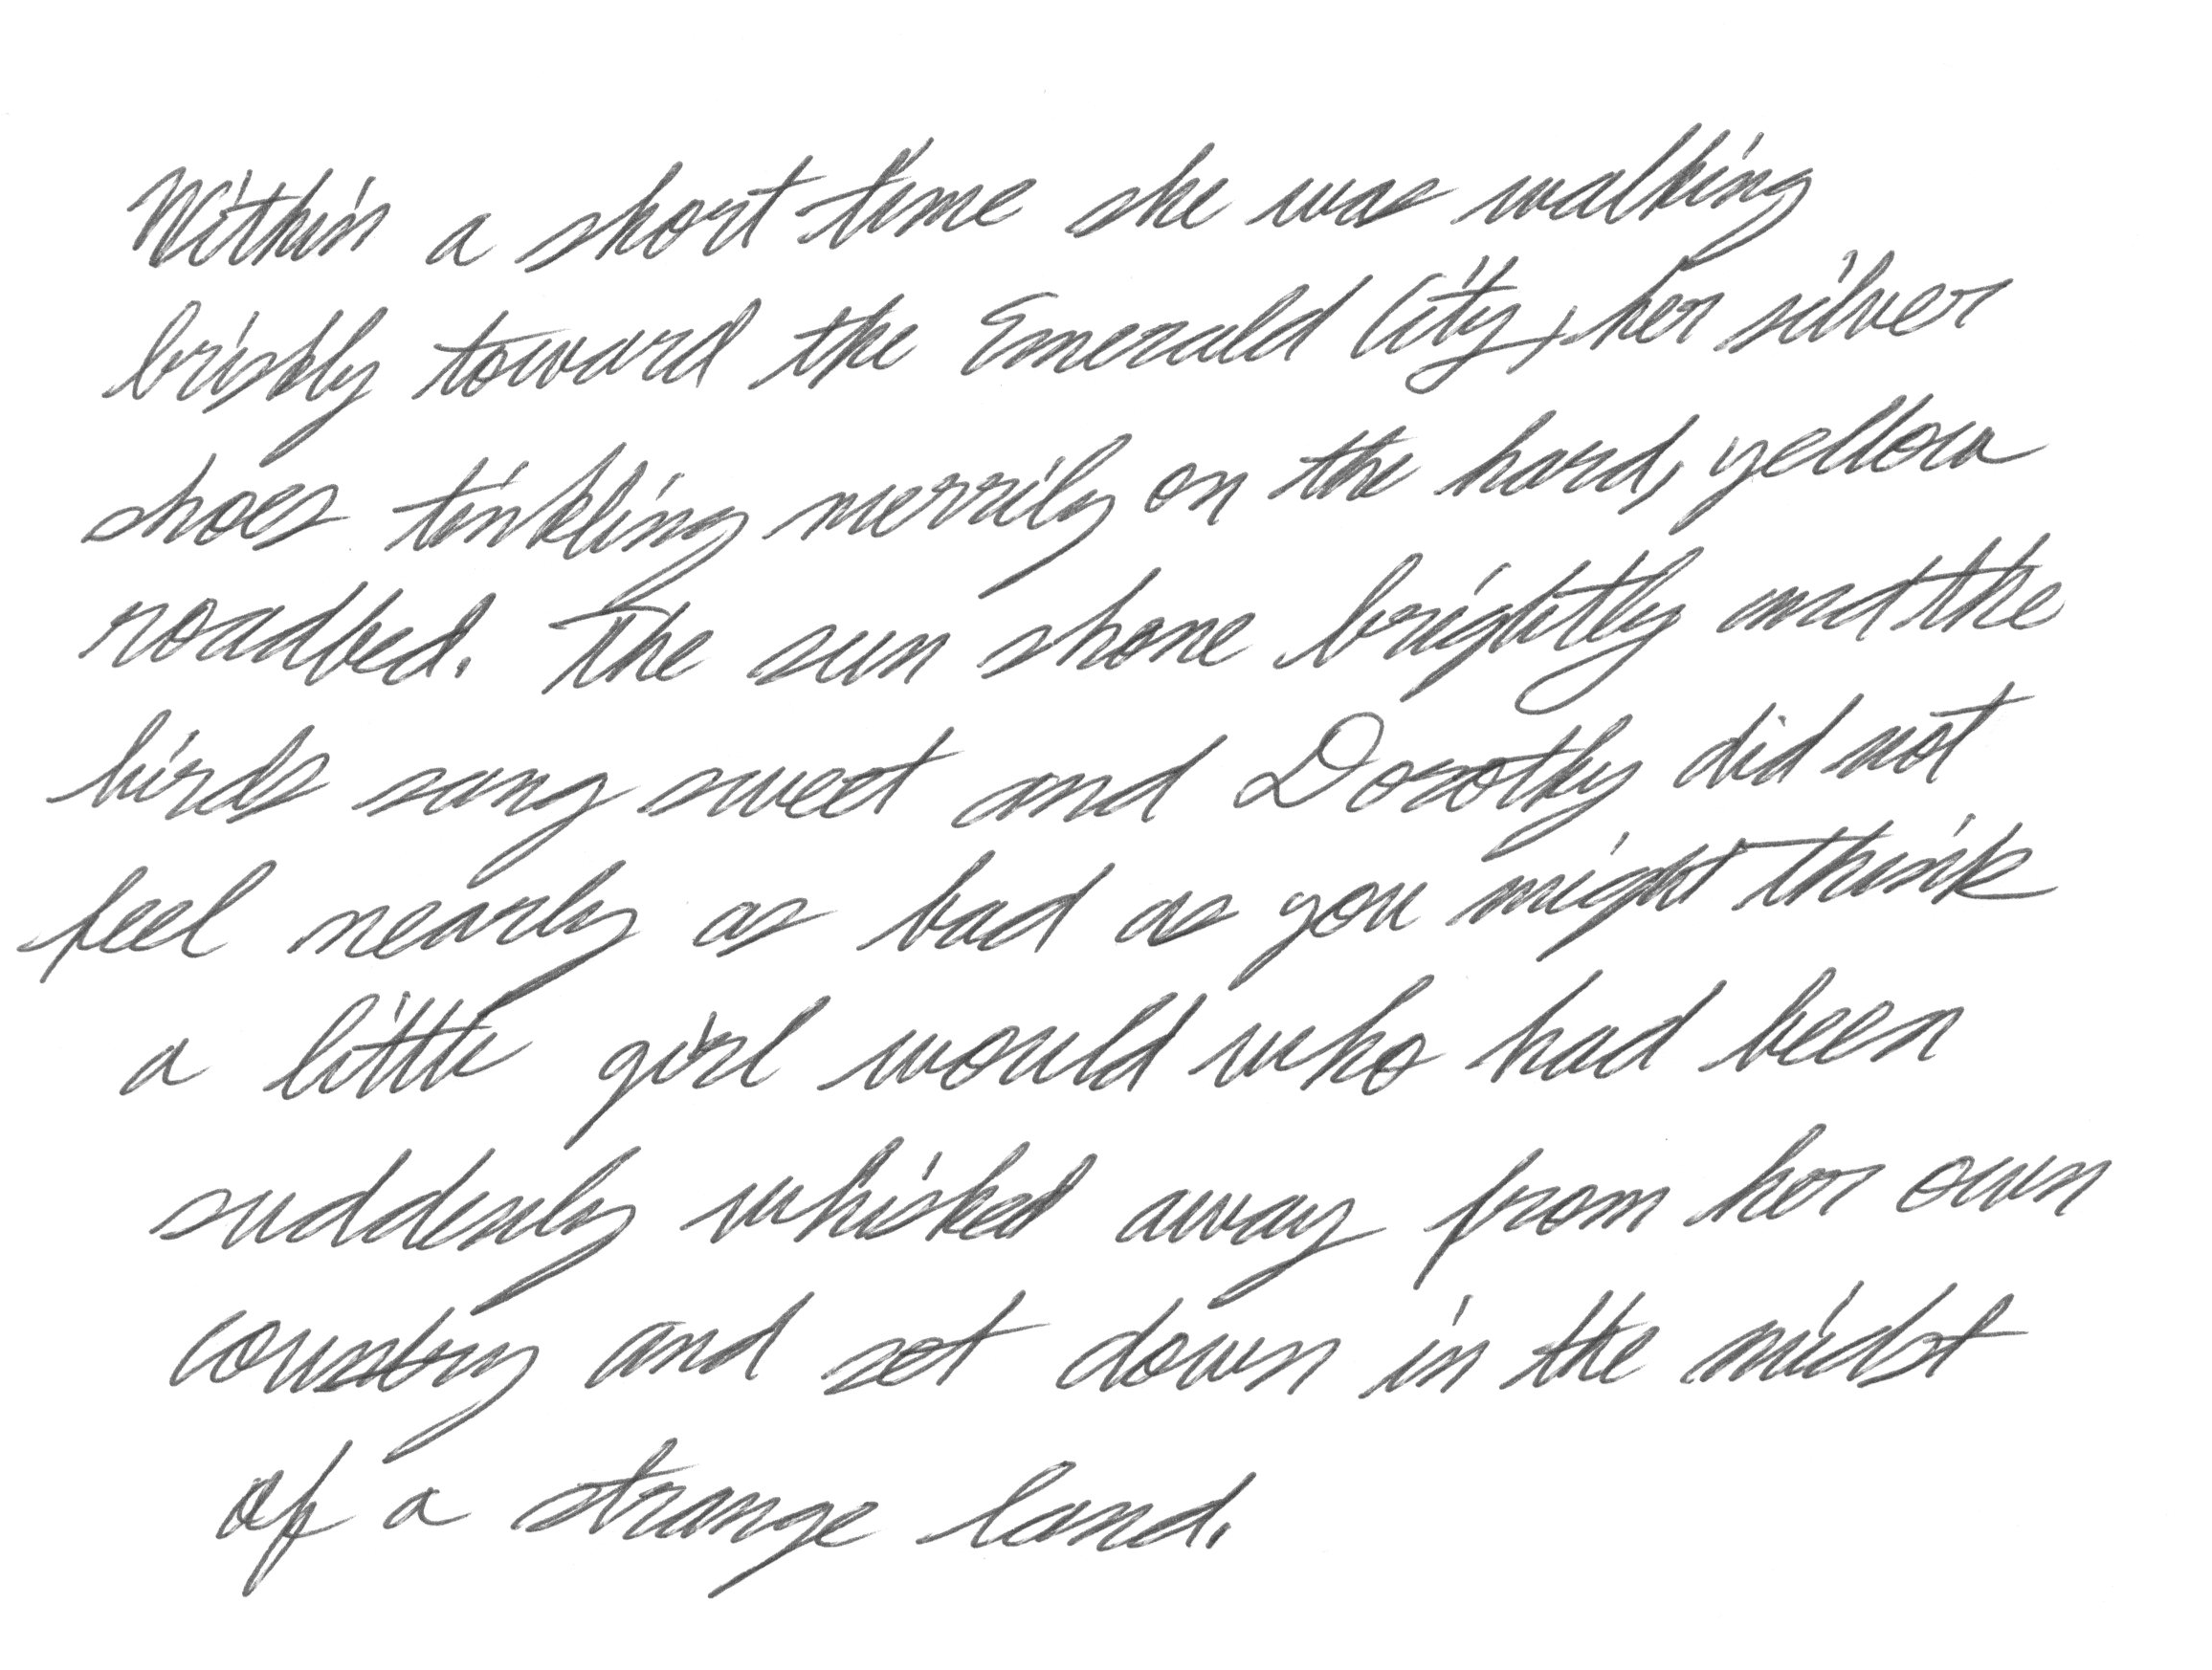 Within a short time she was walking
briskly toward the Emerald City, her silver
shoes tinkling merrily on the hard, yellow
roadbed. The sun shone brightly and the
birds sang sweet and Dorothy did not
feel nearly as bad as you might think
a little girl would who had been
suddenly whisked away from her own
country and set down in the midst
of a strange land.